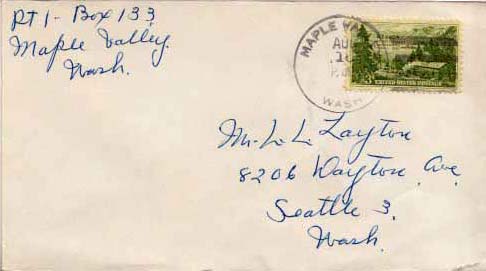 RT 1 - Box 133
Maple Valley.
Wash.
MAPLE VA
AU
10
WASH
UNITED STATES POSTAGE
Mr. L. L. Layton
8206 Dayton Ave
Seattle 3.
Wash.